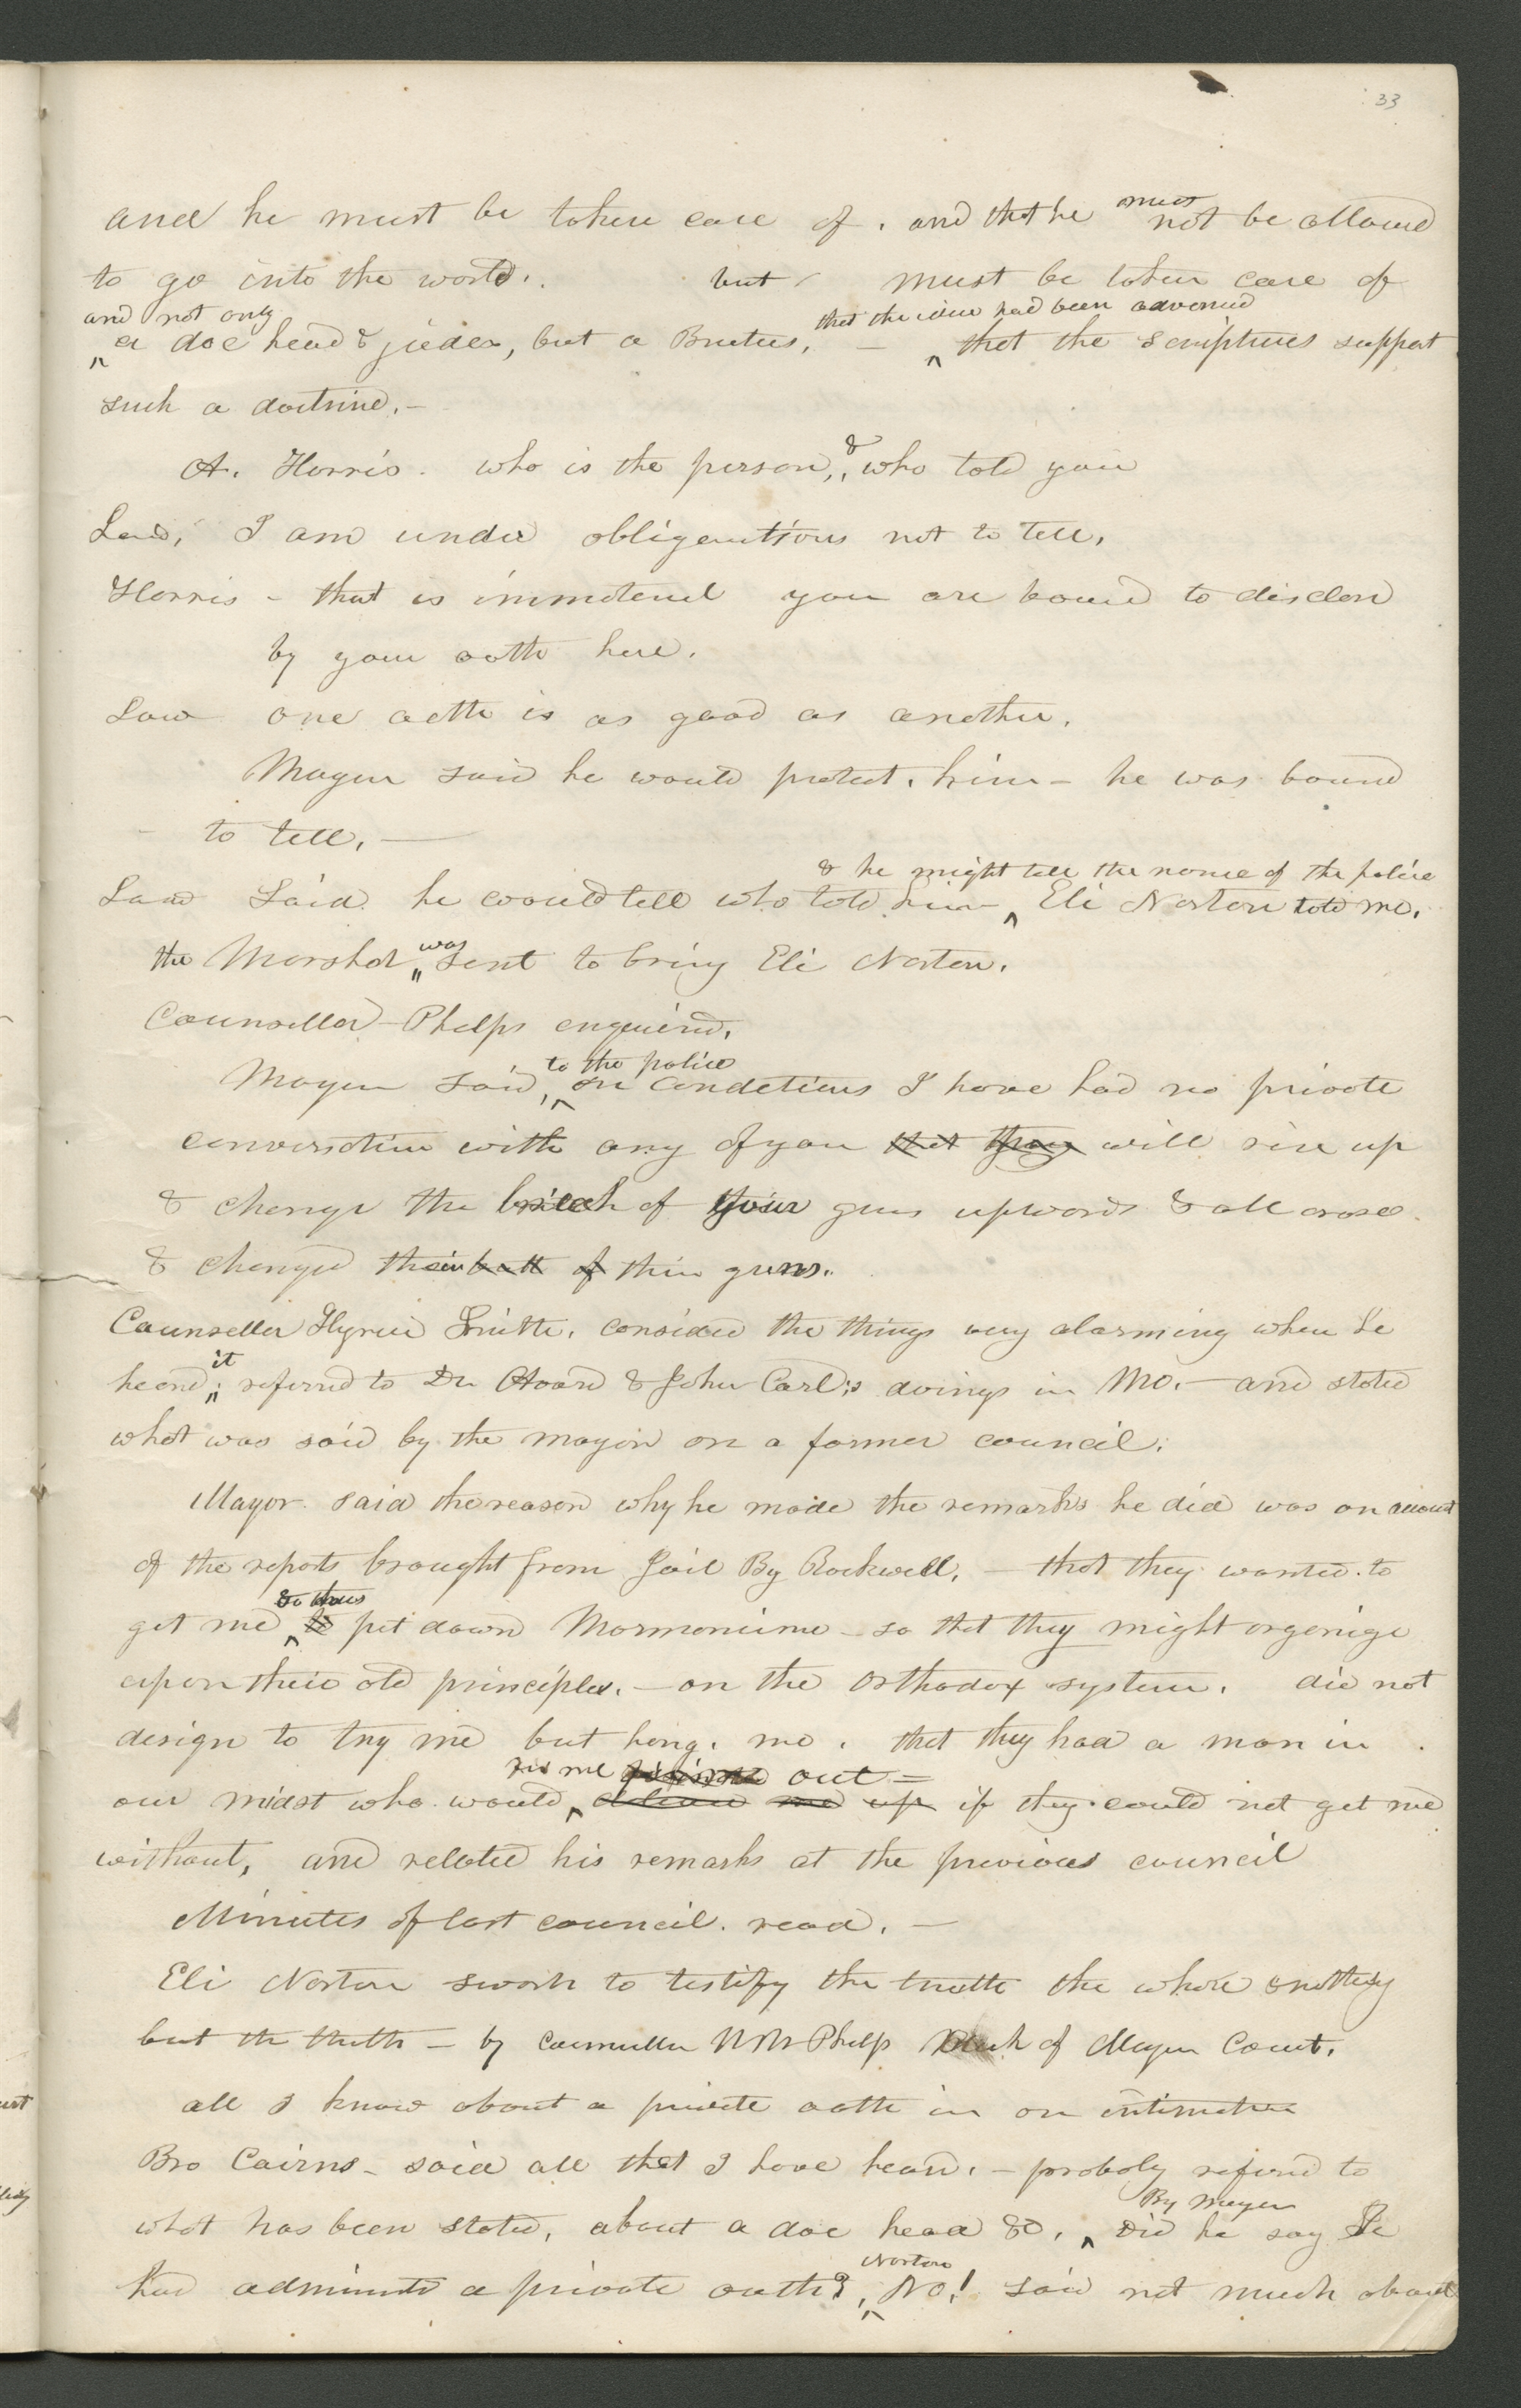 33
and he must be taken care of. and that he must not be allowed
to go into the world. but must be taken care of
and not only that the idea had been advanced
a doe head & judas, but a Brutus, — that the scriptures support
such a doctrine.—
A. Harris. who is the person, & who told you
Law, I am under obligations not to tell.
Harris - that is immaterial you are bound to disclose
by your oath here.
Law one oath is as good as another.
Mayor said he would protect him - he was bound
to tell.—
& he might tell the name of the police
Law said he could tell who told him Eli Norton told me.
the Marshal was sent to bring Eli Norton.
Counsellor Phelps enquired.
to the police
Mayor said, on conditions I have had no private
conversation with any of you that they will rise up
& change the breech of your guns upwards & all arose
& changed their butt of their guns.
Counseller Hyrum Smith, considerd the things very alarming when he
heard it referred to Dr Avard & John Carl's doings in Mo.— and stated
what was said by the mayor on a former council.
Mayor. said the reason why he made the remarks he did was on account
of the reports brought from Jail By Rockwell,— that they wanted to
get me & thus to put down Mormonism - so that they might organize
upon their old principles.— on the Orthodox system. did not
design to try me but hang me. that they had a man in
me out =
our midst who would up if they could not get me
without, and related his remarks at the previous council
Minutes of last council. read.—
Eli Norton sworn to testify the truth the whole & nothing
but the truth - by counseller W W Phelps Clerk of Mayor Court.
all I know about a private oath in an intimation
Bro Cairns - said all that I have heard.— probaly referd to
By Mayor
what has been stated, about a doe head &c. Did he say he
Norton
had administd a private oath? No! said not much about